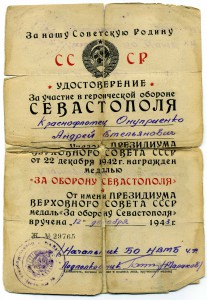 За нашу Советскую Родину
СС СР
УДОСТОВЕРЕНИЕ
За участие в героической обороне
СЕВАСТОПОЛЯ
Краснофлотец Онуприенко
Андрей Емельянович
Указом ПРЕЗИДИУМА
ВЕРХОВНОГО СОВЕТА СССР
от 22 декабря 1942 г. награжден
медалью
"ЗА ОБОРОНУ СЕВАСТОПОЛЯ"
От имени ПРЕЗИДИУМА
ВЕРХОВНОГО СОВЕТА СССР
медаль „За оборону Севастополя"
вручена декабря 194
Ж № 29765
Начальник БО
Подполковник